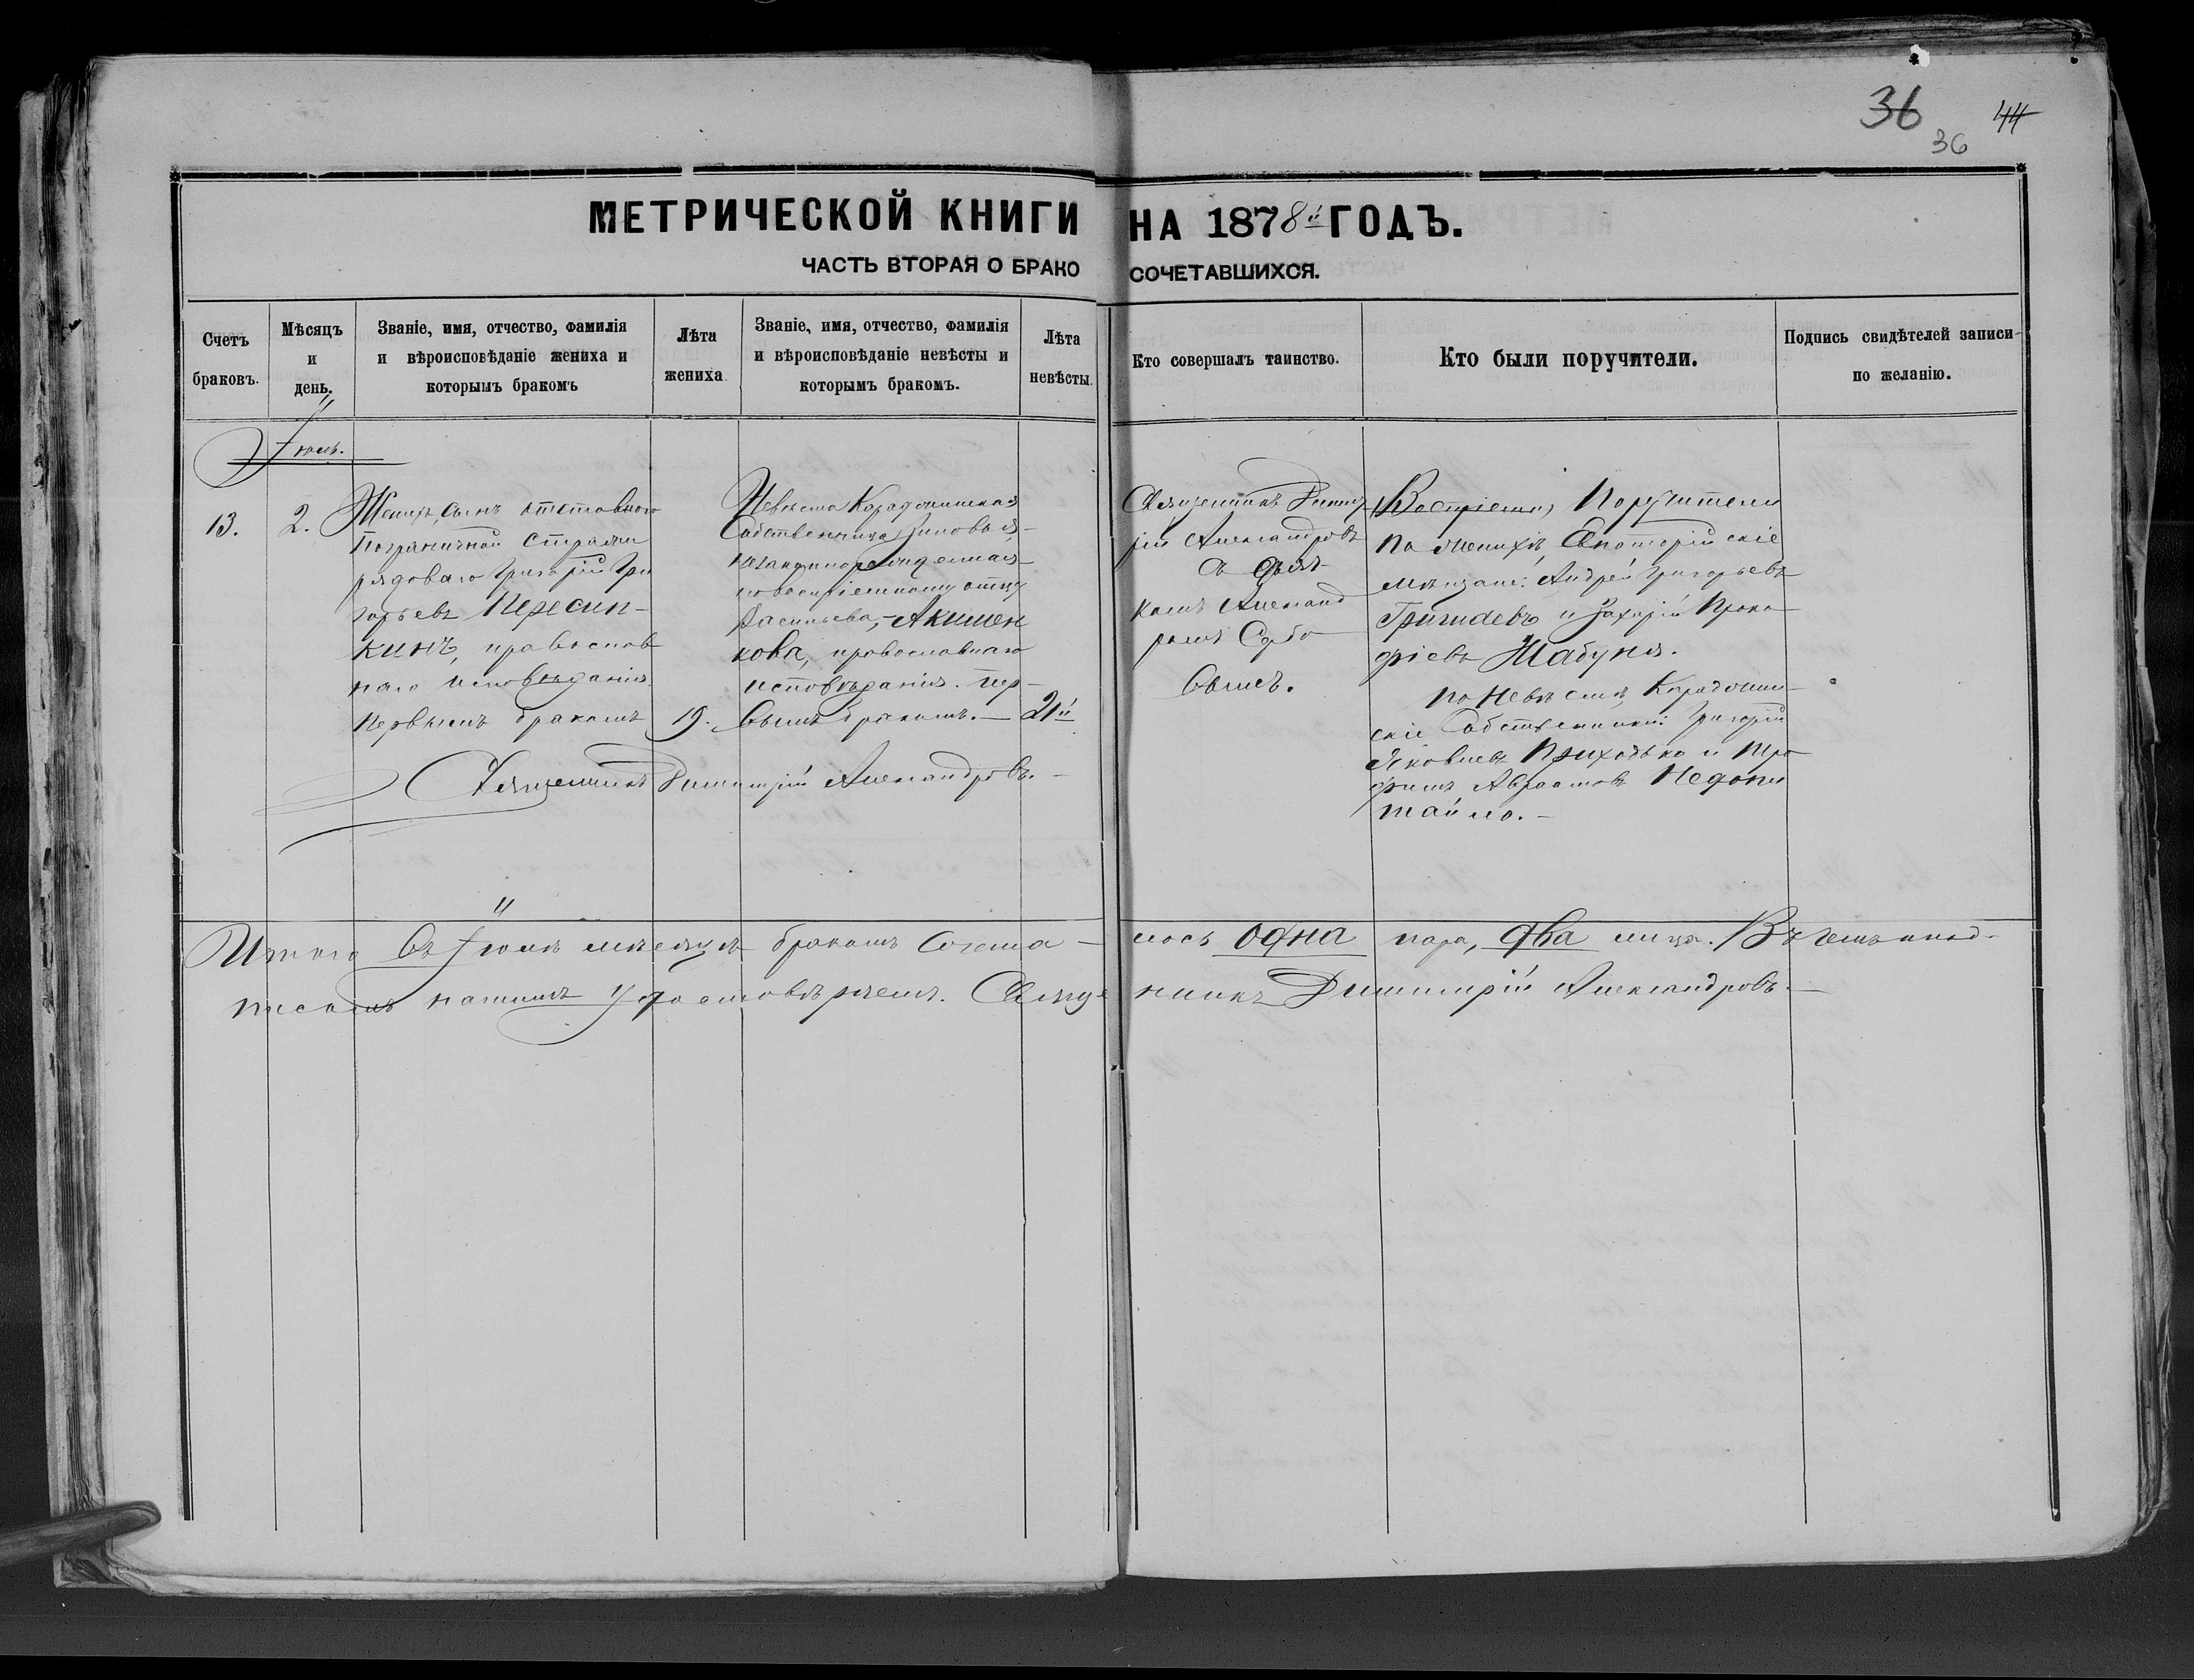 36 44
36
МЕТРИЧЕСКОЙ КНИГИ НА 1878й ГОДЪ.
ЧАСТЬ ВТОРАЯ О БРАКОСОЧЕТАВШИХСЯ.
Счетъ браковъ.
Мѣсяцъ и день.
Званіе, имя, отчество, фамилія
и вѣроисповѣданіе жениха и
которымъ бракомъ
Лѣта
жениха
Званіе, имя, отчество, фамилія
и вѣроисповѣданіе невѣсты и
которымъ бракомъ.
Лѣта
невѣсты.
Кто совершалъ таинство.
Кто были поручители.
Подпись свидѣтелей записи
по желанію.
13.
2.
Женихъ, сынъ отставного
пограничной стражи
рядоваго Григорій Гри
горьевъ Пересип-
кинъ, православ
наго исповѣданія.
первымъ бракомъ
19.
Невѣста
Собственница Зиновья
незаконнорожденная
по воспріемному отцу
Васильева, Акимен
кова, православнаго
исповѣданія. пер-
вымъ бракомъ. —
21й
Священникъ Димит
рій Александровъ
съ дьяч
комъ Александ
ромъ
Поручители
По женихѣ, Евпаторійскіе
мѣщане: Андрей Григорьевъ
и Захарій Проко
фіевъ Шабуня.
По невѣстѣ,
скіе Собственники: Григорій
Яковлевъ Приходько и Тро
фимъ Авраамовъ Недопи
тайло. —
Священникъ Димитрій Александровъ. —
Итого въ Іюлѣ мѣсяцѣ бракомъ сочета - лось одна пара, два лица. Въ чемъ под-
писомъ нашимъ удостовѣряемъ. Священникъ Димитрій Александровъ. —